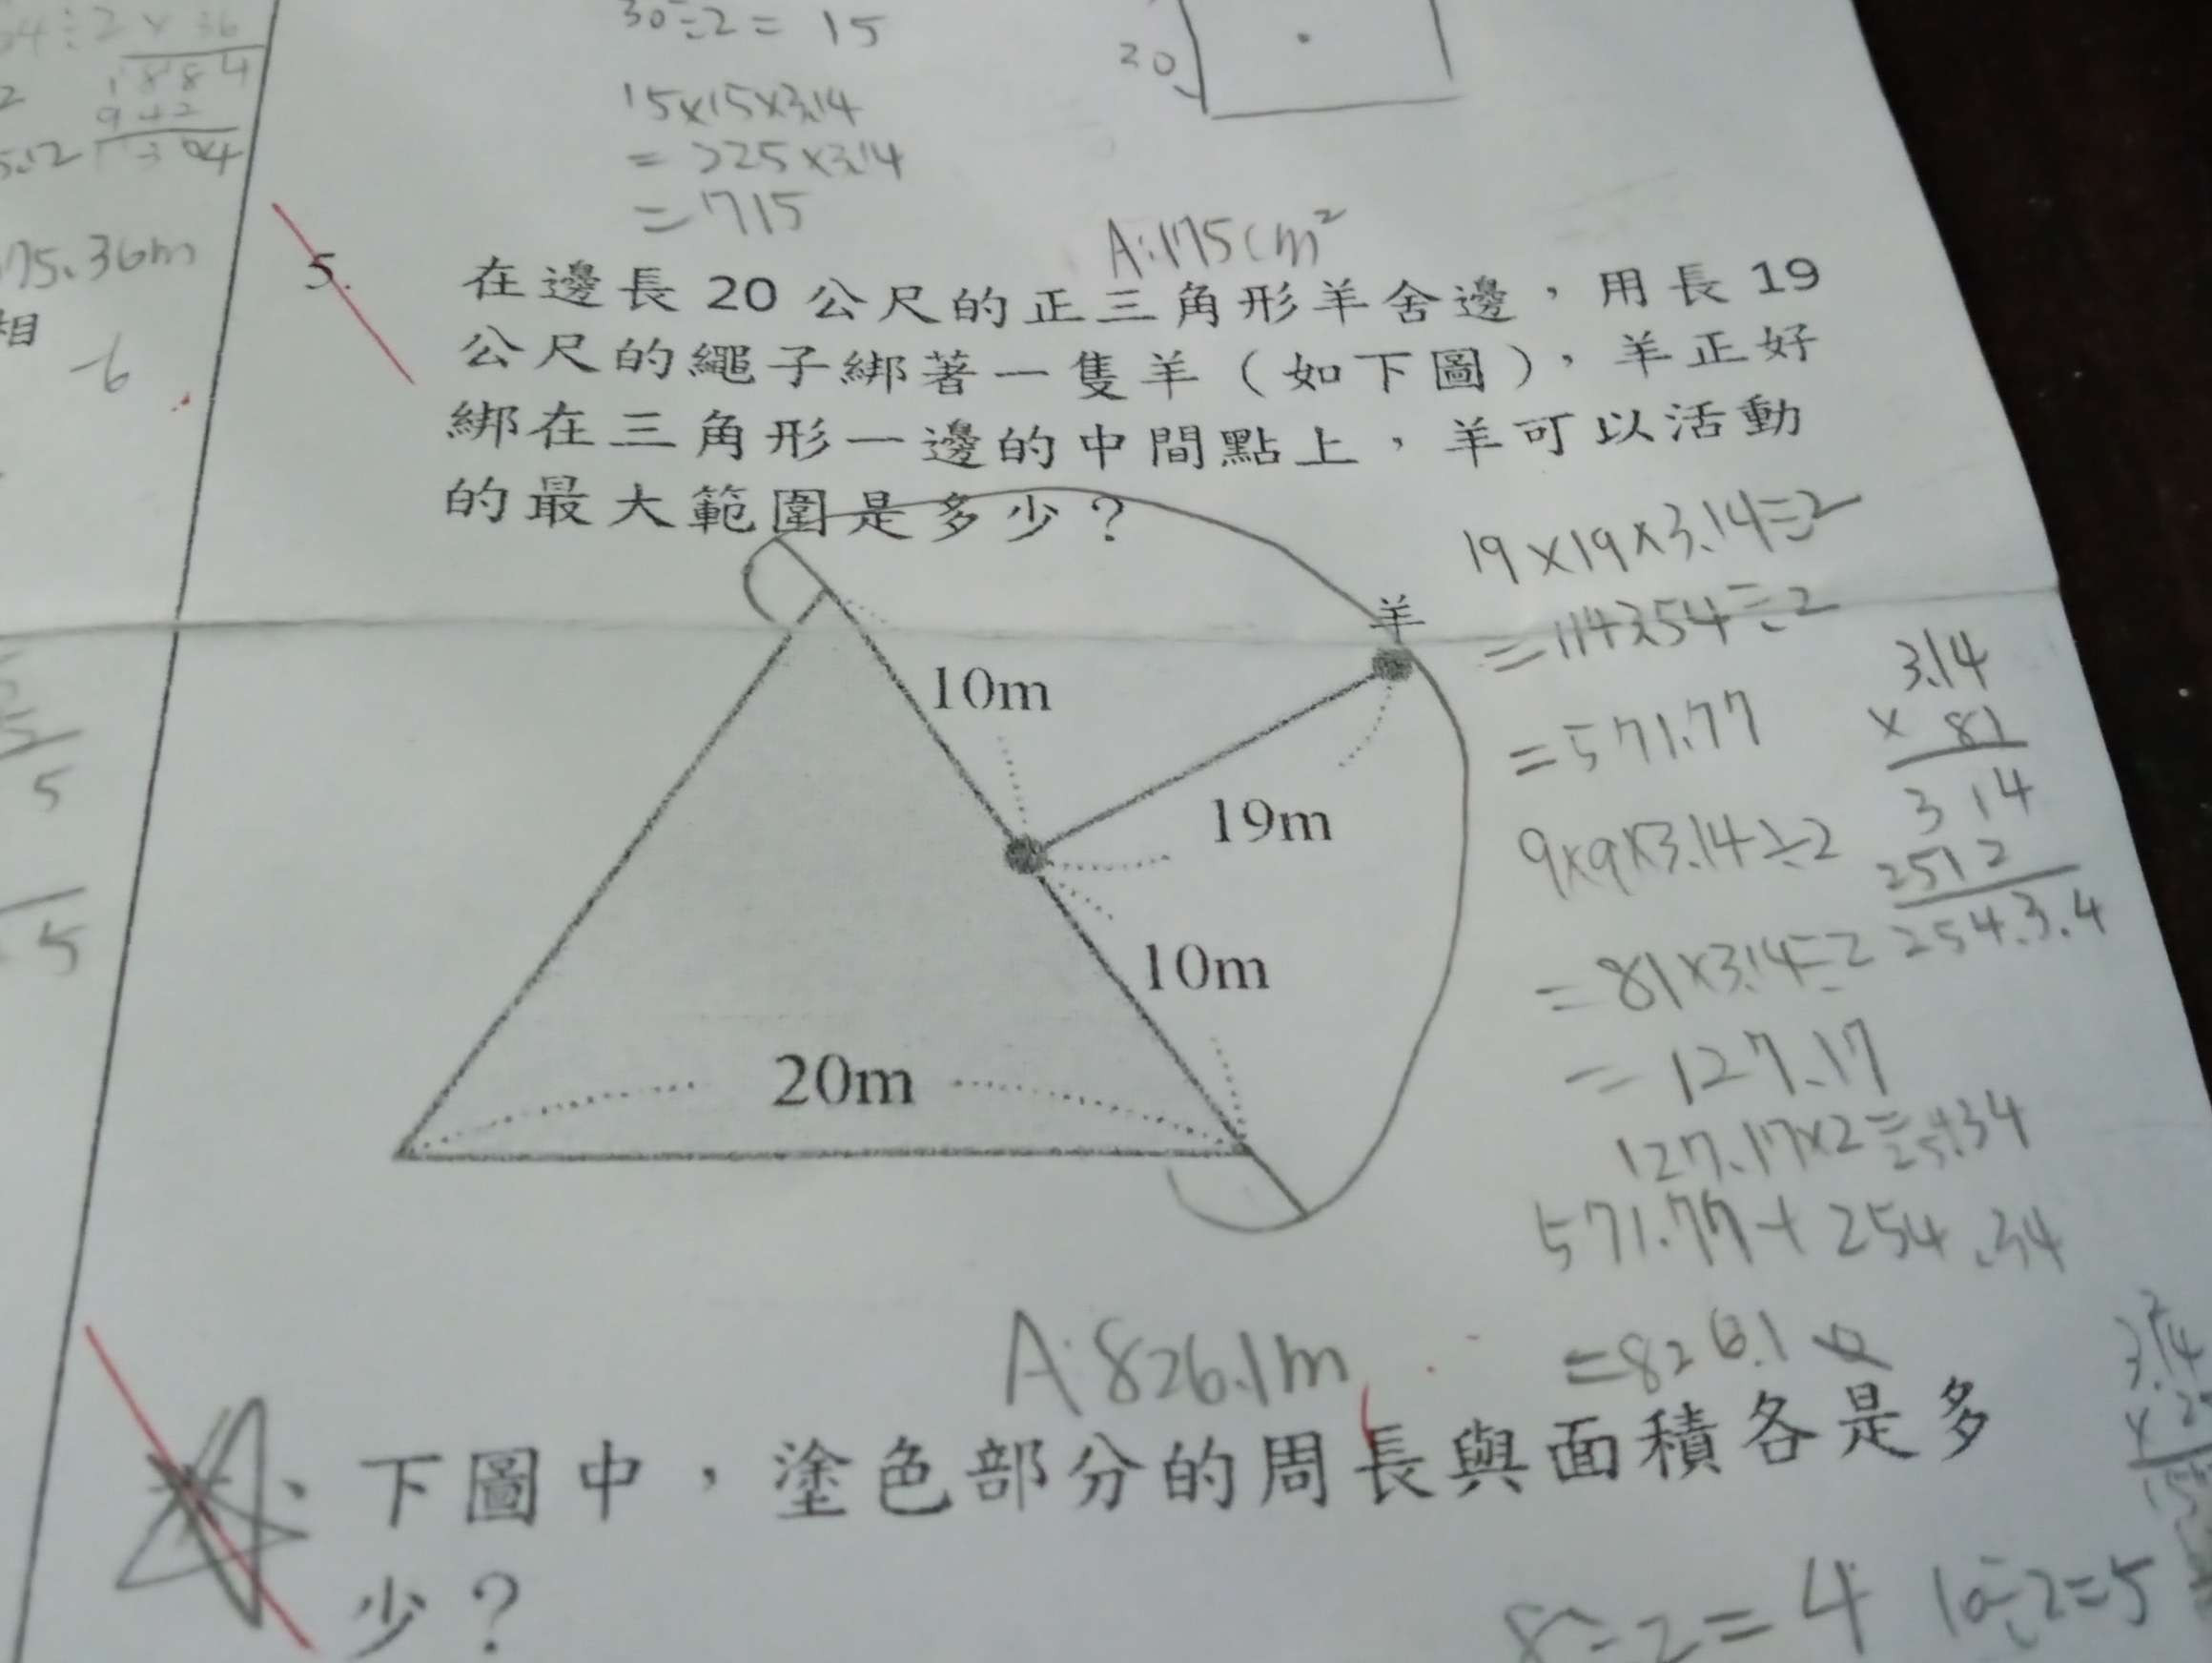 30÷2= 15
15×15×3.14
= 225×3.14
= 715
A:175cm²
20
1884
942
75.36m
相
-6
5.
在邊長 20 公尺的正三角形羊舍邊，用長 19
公尺的繩子綁著一隻羊（如下圖），羊正好
綁在三角形一邊的中間點上，羊可以活動
的最大範圍是多少？
羊
10m
19m
10m
20m
19×19×3.14÷2
=571.77
3.14
× 81
314
2512
254.3.4
9×9×3.14÷2
= 81×3.14÷2
= 127.17
127.17×2=254.34
571.77+254.34
=826.1
A:826.1m
5
5
下圖中，塗色部分的周長與面積各是多
少？
8÷2=4 10÷2=5